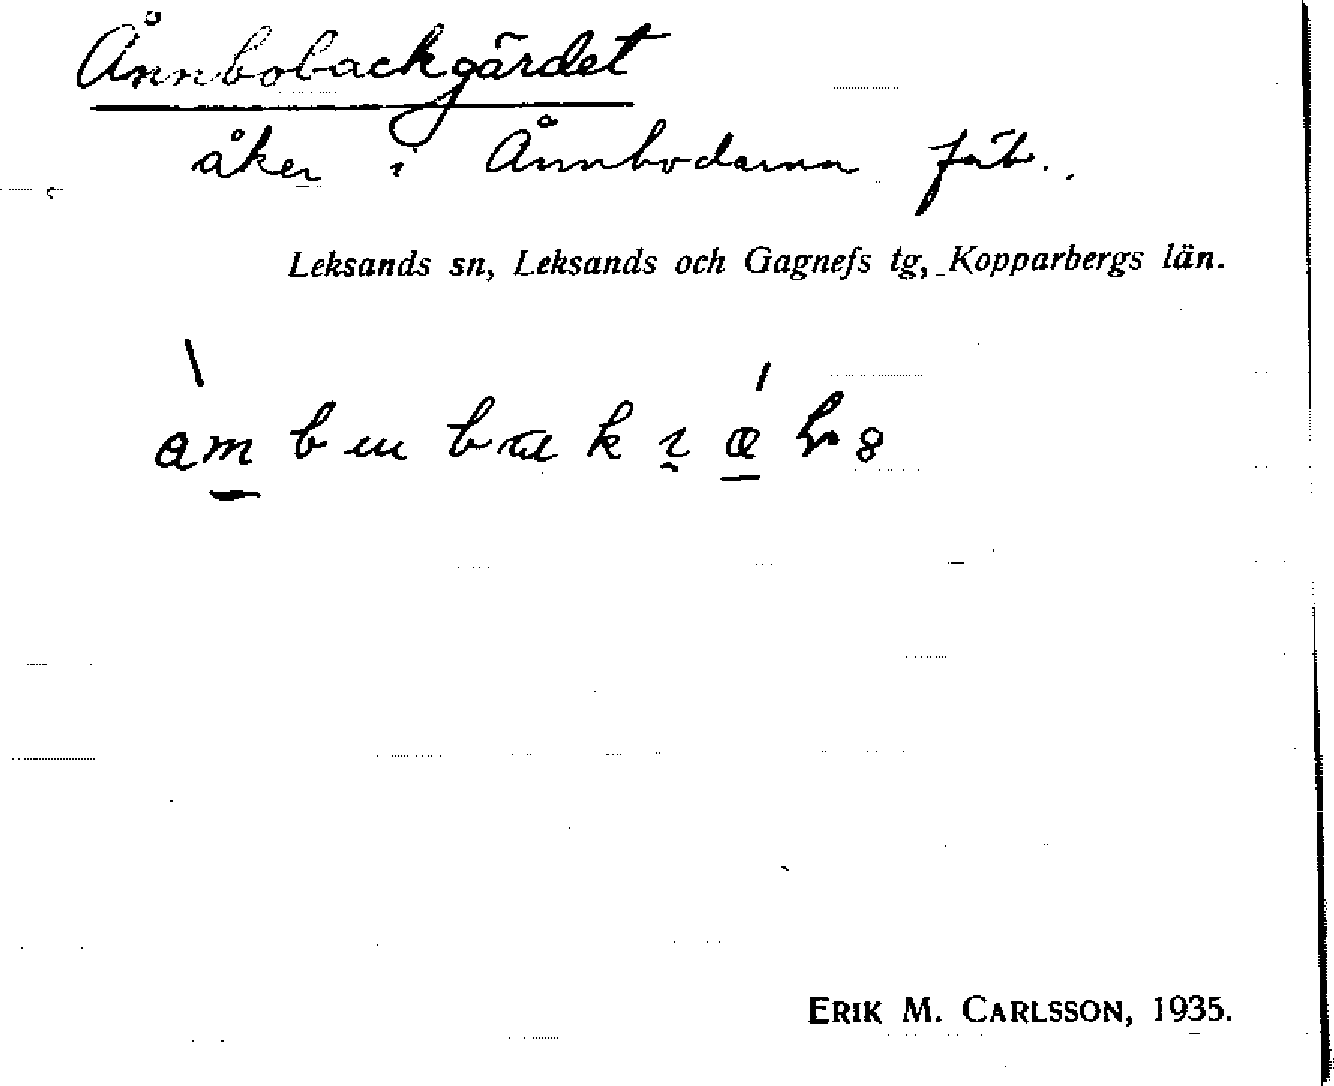 Ånnbobackgärdet
åker i Ånnbodarna fäb.
Leksands sn, Leksands och Gagnefs tg, Kopparbergs län.
ERIK M. CARLSSON, 1935.